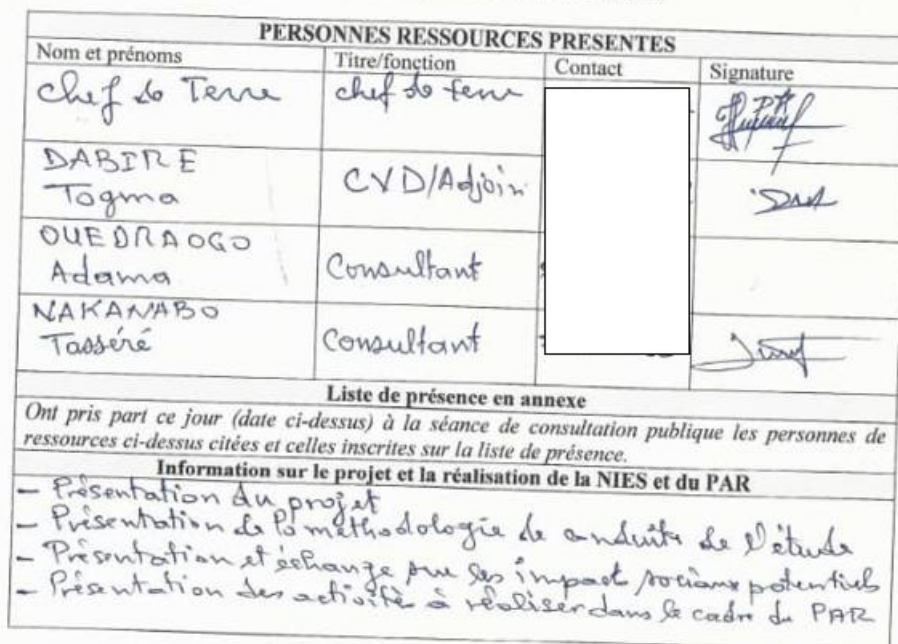 PERSONNES RESSOURCES PRESENTES
Nom et prénoms Titre/fonction Contact Signature
Chef de Terre chef de terre PA
DABIRE
Togma CVD/Adjoin
OUEDRAOGO
Adama Consultant
NAKANABO
Tasséré Consultant
Liste de présence en annexe
Ont pris part ce jour (date ci-dessus) à la séance de consultation publique les personnes de
ressources ci-dessus citées et celles inscrites sur la liste de présence.
Information sur le projet et la réalisation de la NIES et du PAR
- Présentation du projet
- Présentation de la méthodologie de conduite de l'étude
- Présentation et échange sur les impact sociaux potentiels
- Présentation des activités à réaliser dans le cadre du PAR